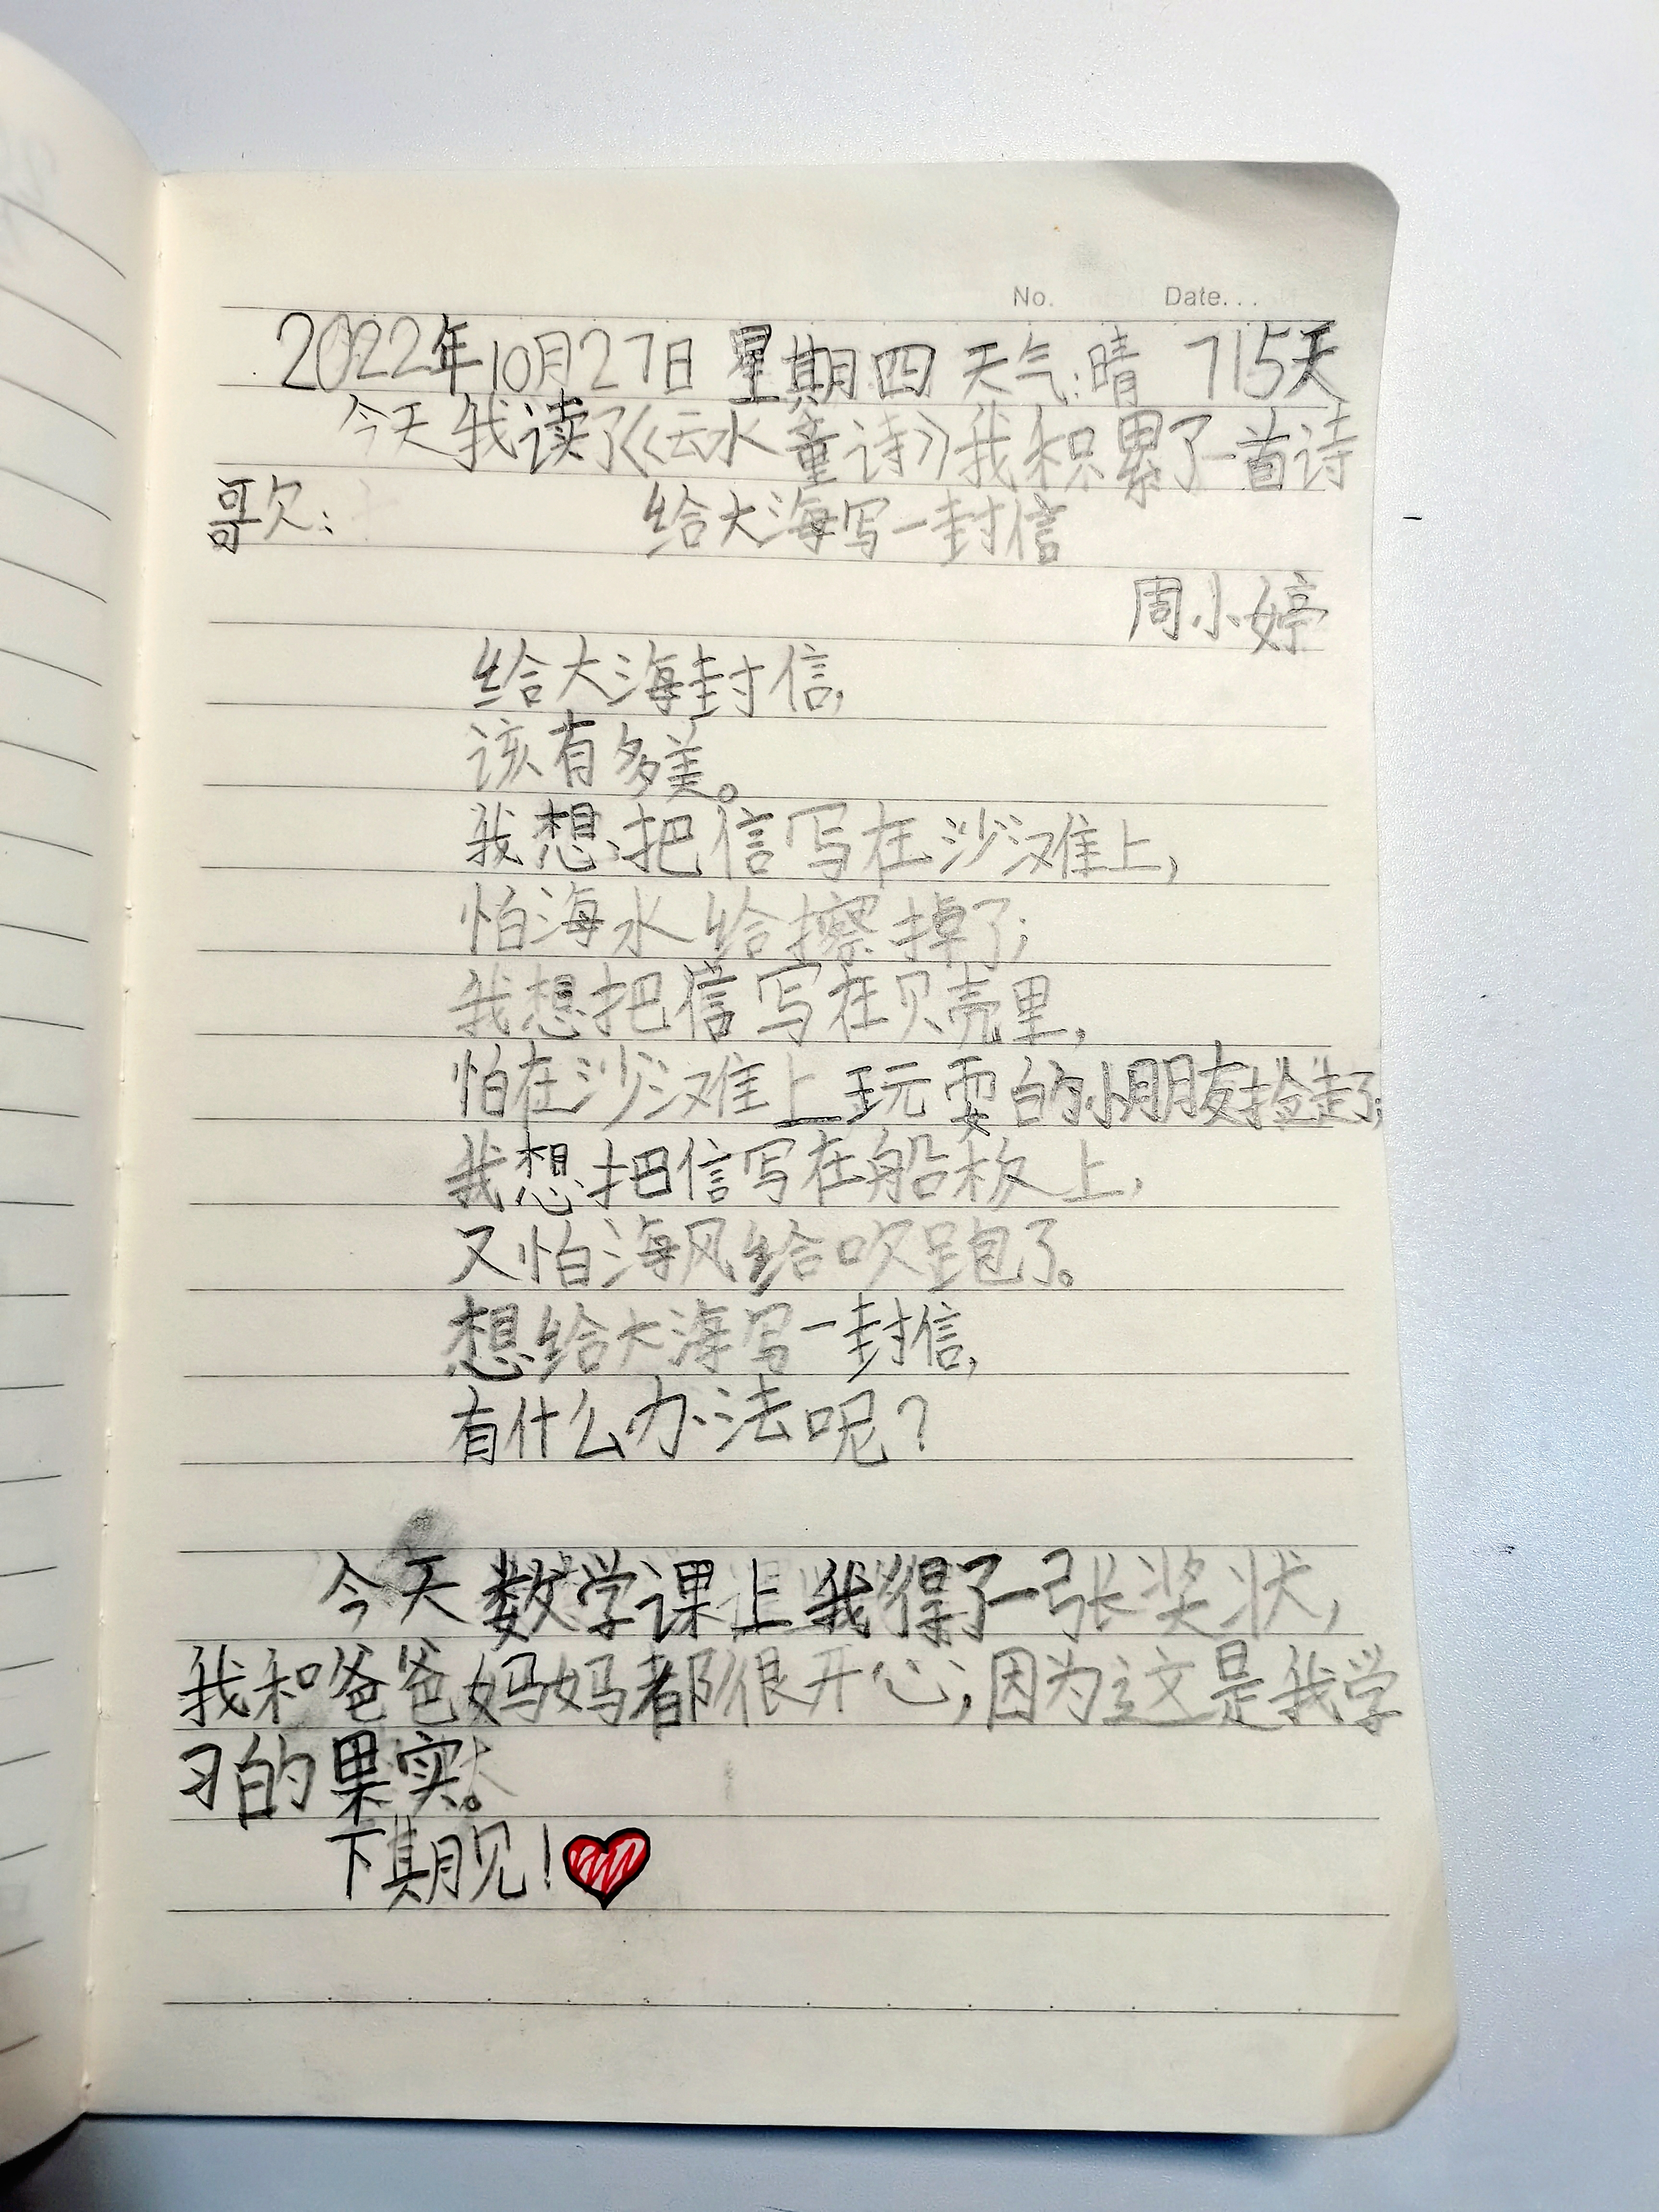 No. Date...
2022年10月27日 星期四 天气:晴 715天
今天我读了《云水童诗》我积累了一首诗
歌: 给大海写一封信
周小婷
给大海封信,
该有多美。
我想把信写在沙滩上,
怕海水给擦掉了;
我想把信写在贝壳里,
怕在沙滩上玩耍的小朋友捡走了;
我想把信写在船板上,
又怕海风给吹跑了。
想给大海写一封信,
有什么办法呢?
今天数学课上我得了一张奖状,
我和爸爸妈妈都很开心,因为这是我学
习的果实。
下期见!